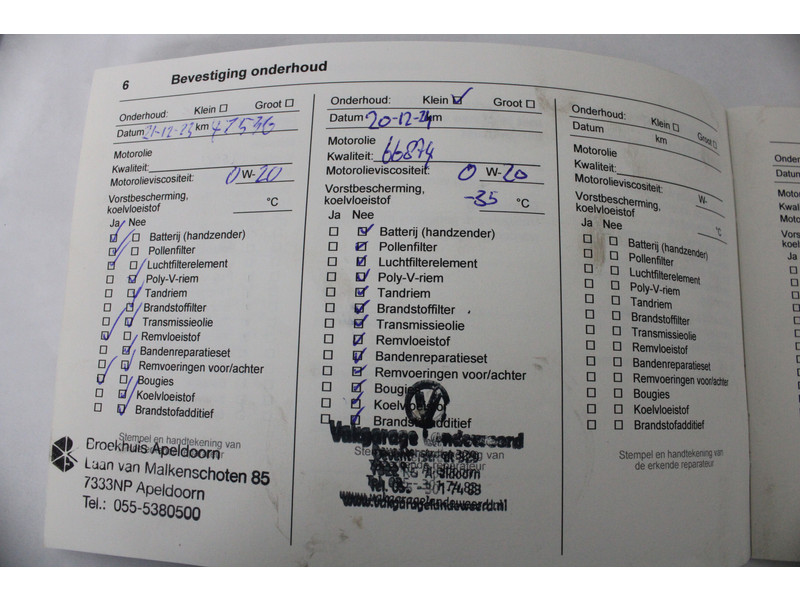 6 Bevestiging onderhoud
Onderhoud: Klein Groot
Datum 21-12-23 km 47536
Motorolie
Kwaliteit:
Motorolieviscositeit: 0 W-20
Vorstbescherming,
koelvloeistof °C
Ja Nee
Batterij (handzender)
Pollenfilter
Luchtfilterelement
Poly-V-riem
Tandriem
Brandstoffilter
Transmissieolie
Remvloeistof
Bandenreparatieset
Remvoeringen voor/achter
Bougies
Koelvloeistof
Brandstofadditief
Stempel en handtekening van
Broekhuis Apeldoorn
Laan van Malkenschoten 85
7333NP Apeldoorn
Tel.: 055-5380500
Onderhoud: Klein Groot
Datum 20-12-24 km
Motorolie
Kwaliteit: 66874
Motorolieviscositeit: 0 W-20
Vorstbescherming,
koelvloeistof -35 °C
Ja Nee
Batterij (handzender)
Pollenfilter
Luchtfilterelement
Poly-V-riem
Tandriem
Brandstoffilter
Transmissieolie
Remvloeistof
Bandenreparatieset
Remvoeringen voor/achter
Bougies
Koelvloeistof
Brandstofadditief
Vakgarage Landeweerd
www.vakgaragelandeweerd.nl
Onderhoud: Klein Groot
Datum km
Motorolie
Kwaliteit:
Motorolieviscositeit: W-
Vorstbescherming,
koelvloeistof °C
Ja Nee
Batterij (handzender)
Pollenfilter
Luchtfilterelement
Poly-V-riem
Tandriem
Brandstoffilter
Transmissieolie
Remvloeistof
Bandenreparatieset
Remvoeringen voor/achter
Bougies
Koelvloeistof
Brandstofadditief
Stempel en handtekening van
de erkende reparateur